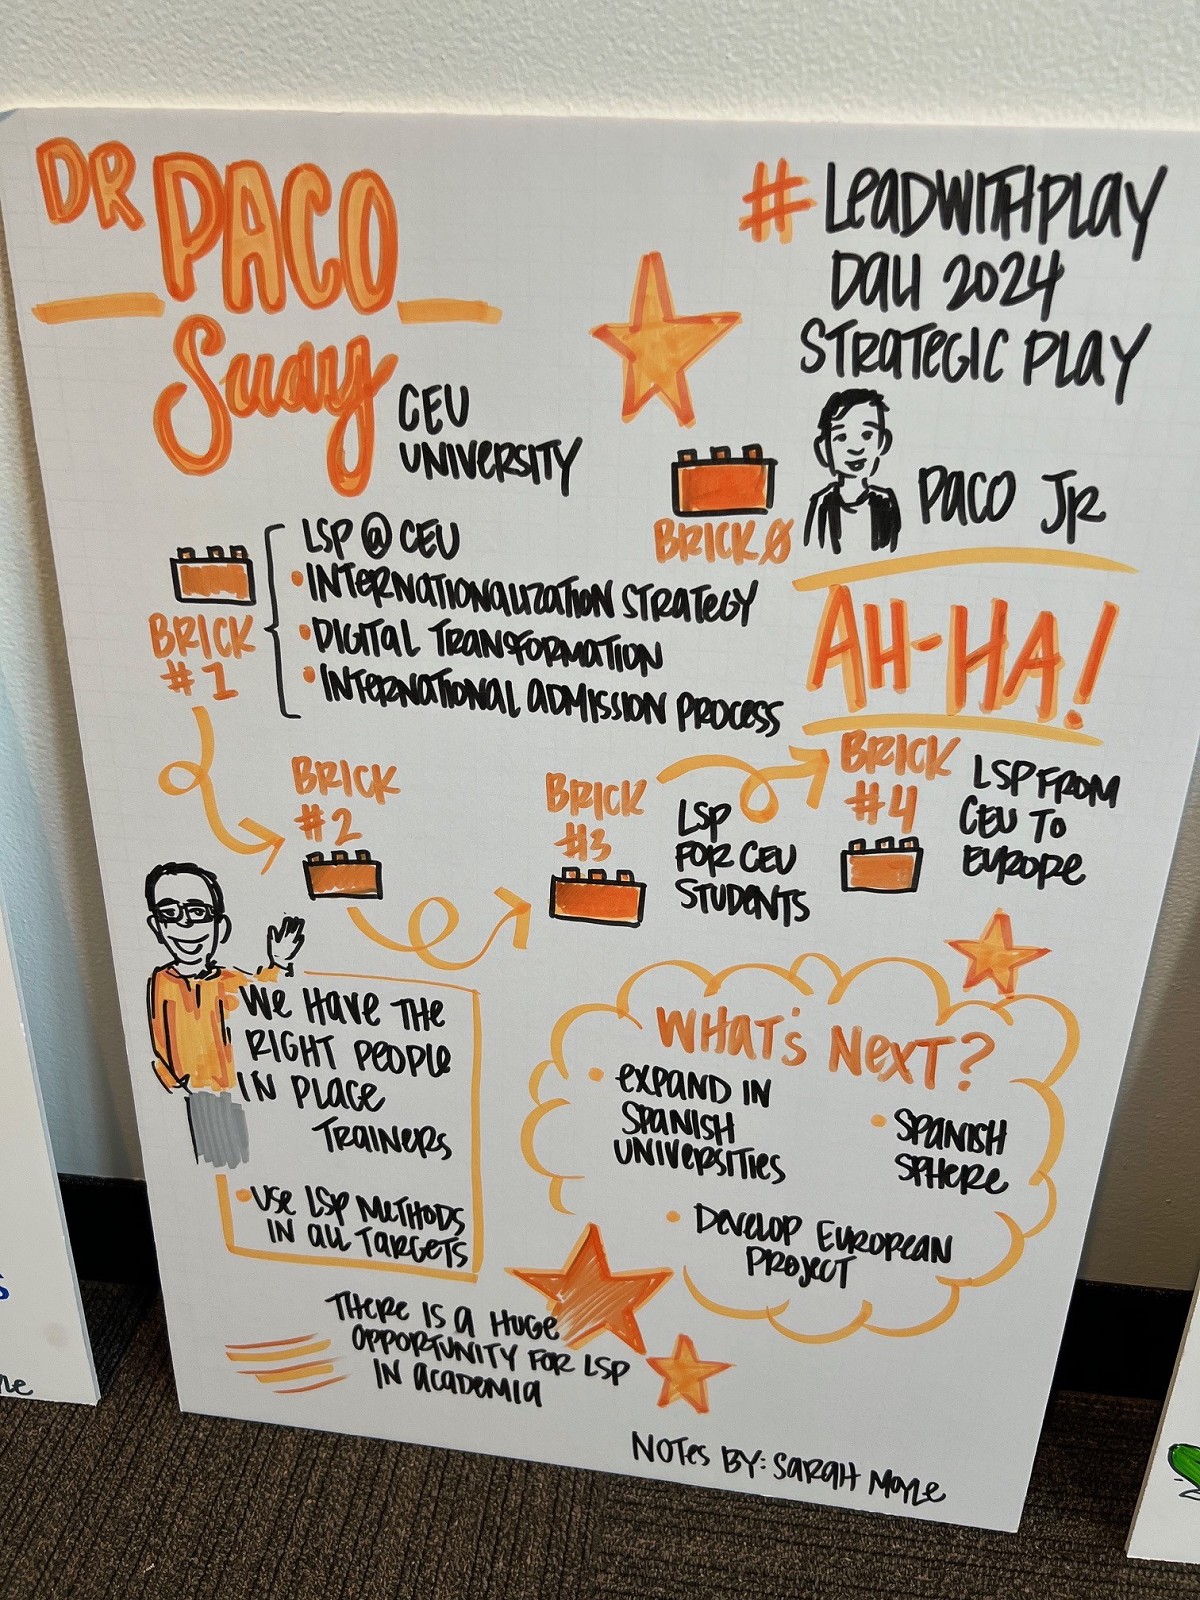 DR PACO
Suay
CEU
UNIVERSITY
#LEADWITHPLAY
DALI 2024
STRATEGIC PLAY
PACO JR
BRICK Ø
BRICK
#1
LSP @ CEU
• INTERNATIONALIZATION STRATEGY
• DIGITAL TRANSFORMATION
• INTERNATIONAL ADMISSION PROCESS
AH-HA!
BRICK
#2
BRICK
#3
LSP
FOR CEU
STUDENTS
BRICK
#4
LSP FROM
CEU TO
EUROPE
• WE HAVE THE
RIGHT PEOPLE
IN PLACE
TRAINERS
• USE LSP METHODS
IN ALL TARGETS
WHAT'S NEXT?
• EXPAND IN
SPANISH
UNIVERSITIES
• SPANISH
SPHERE
• DEVELOP EUROPEAN
PROJECT
THERE IS A HUGE
OPPORTUNITY FOR LSP
IN ACADEMIA
NOTES BY: SARAH MOYLE